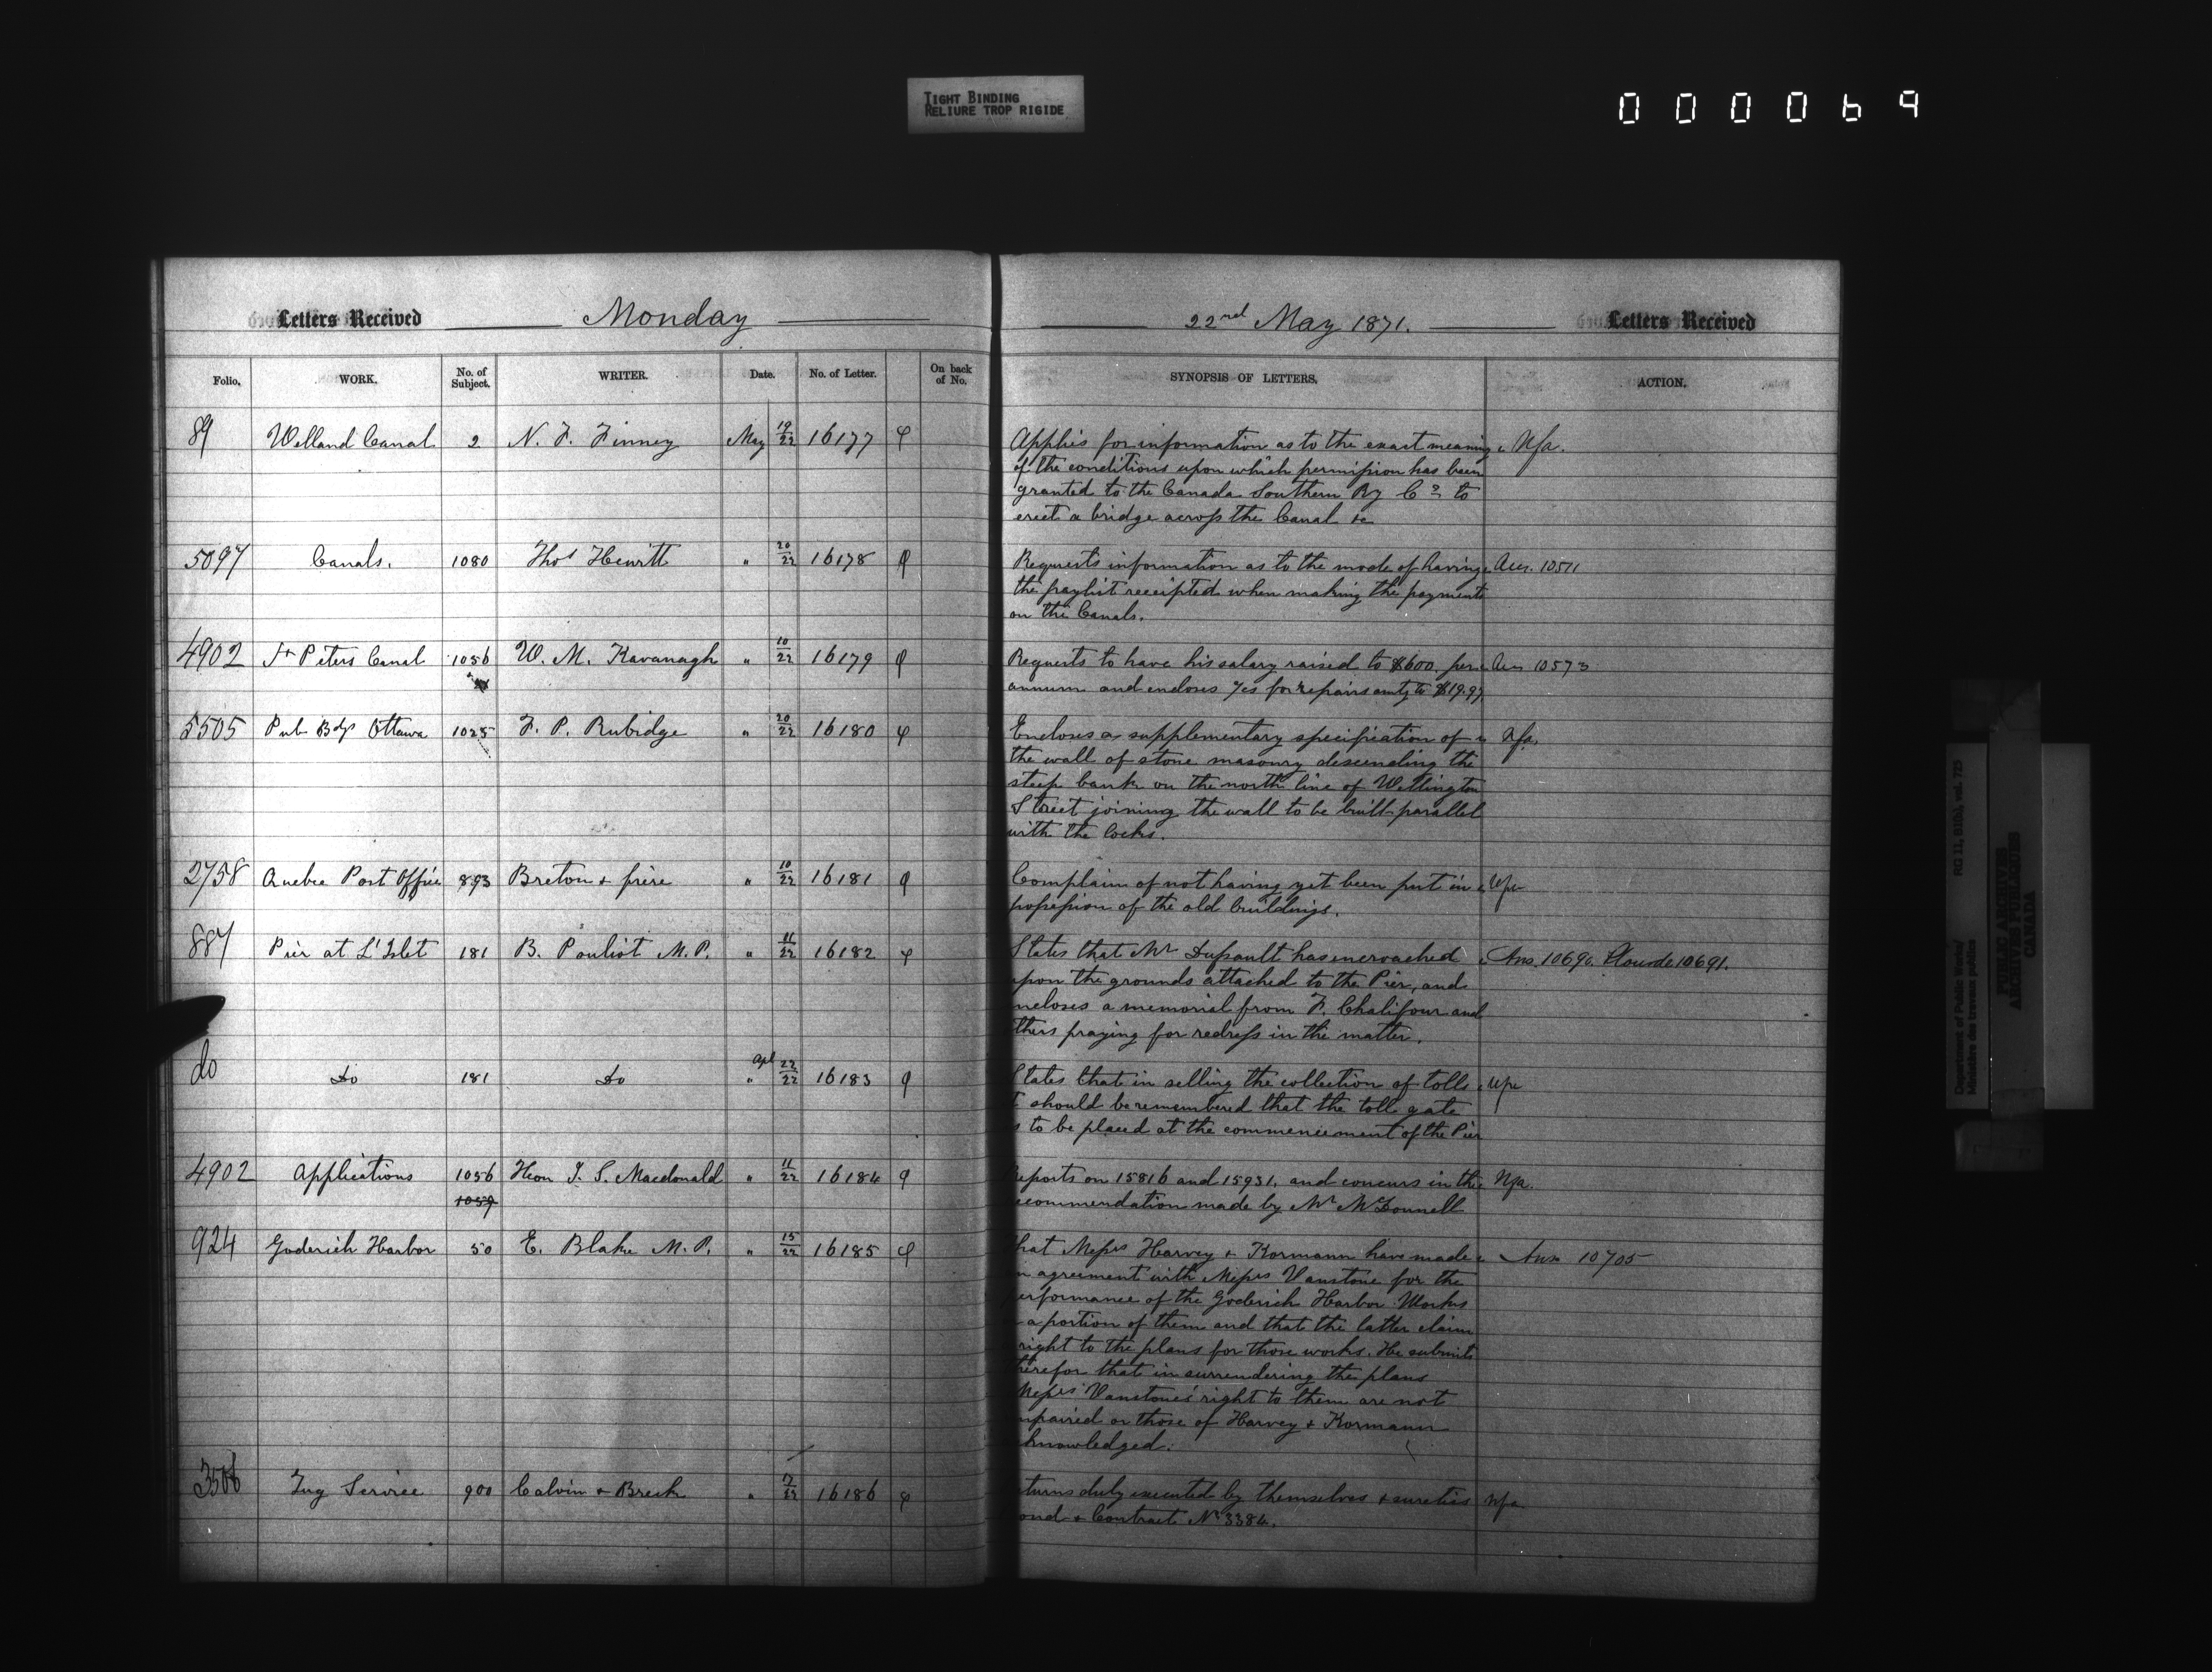 TIGHT BINDING
RELIURE TROP RIGIDE
000069
Letters Received Monday
22nd May 1871. Letters Received
Folio. WORK. No. of Subject. WRITER. Date. No. of Letter. On back of No.
SYNOPSIS OF LETTERS. ACTION.
89 Welland Canal 2 N. F. Finney May 19/22 16177
Applies for information as to the exact meaning Nfa.
of the conditions upon which permission has been
granted to the Canada Southern Ry Co. to
erect a bridge across the Canal &c
5097 Canals. 1080 Thos Hewitt " 20/22 16178
Requests information as to the mode of having Ans. 10511
the paylist receipted when making the payments
on the Canals.
4902 St Peters Canal 1056 W. M. Kavanagh " 10/22 16179
Requests to have his salary raised to $600. per Ans 10573
annum and encloses for repairs amtg to $19.97
5505 Pub Bdgs Ottawa 1025 F. P. Rubidge " 20/22 16180
Encloses a supplementary specification of Nfa.
the wall of stone masonry descending the
steep bank on the north line of Wellington
Street joining the wall to be built parallel
with the locks.
2758 Quebec Post Office 893 Breton & frère " 10/22 16181
Complain of not having yet been put in
possession of the old buildings.
887 Pier at L'Islet 181 B. Pouliot M.P. " 11/22 16182
States that Mr Dussault has encroached Ans. 10690. 10691.
upon the grounds attached to the Pier, and
ncloses a memorial from F. Chalifour and
thers praying for redress in the matter.
do Do 181 Do Apl " 22/22 16183
States that in selling the collection of tolls
t should be remembered that the toll gate
s to be placed at the commencement of the Pier
4902 Applications 1056 Hon J. S. Macdonald " 11/22 16184
eports on 15816 and 15931. and concurs in the Nfa.
1059
ecommendation made by Mr McDonnell
924 Goderich Harbor 50 E. Blake M.P. " 15/22 16185
hat Messrs Harvey & Kormann have made Ans 10705
n agreement with Messrs Vanstone for the
erformance of the Goderich Harbor Works
a portion of them and that the latter claim
right to the plans for those works. He submits
herefor that in surrendering the plans
Messrs Vanstone's right to them are not
mpaired or those of Harvey & Kormann
knowledged.
3506 Tug Service 900 Calvin & Breck " 7/22 16186
turns duly executed by themselves & sureties Nfa
ond & Contract No 3384.
Department of Public Works/ RG 11, B1(b), vol. 725
Ministère des travaux publics
PUBLIC ARCHIVES
ARCHIVES PUBLIQUES
CANADA